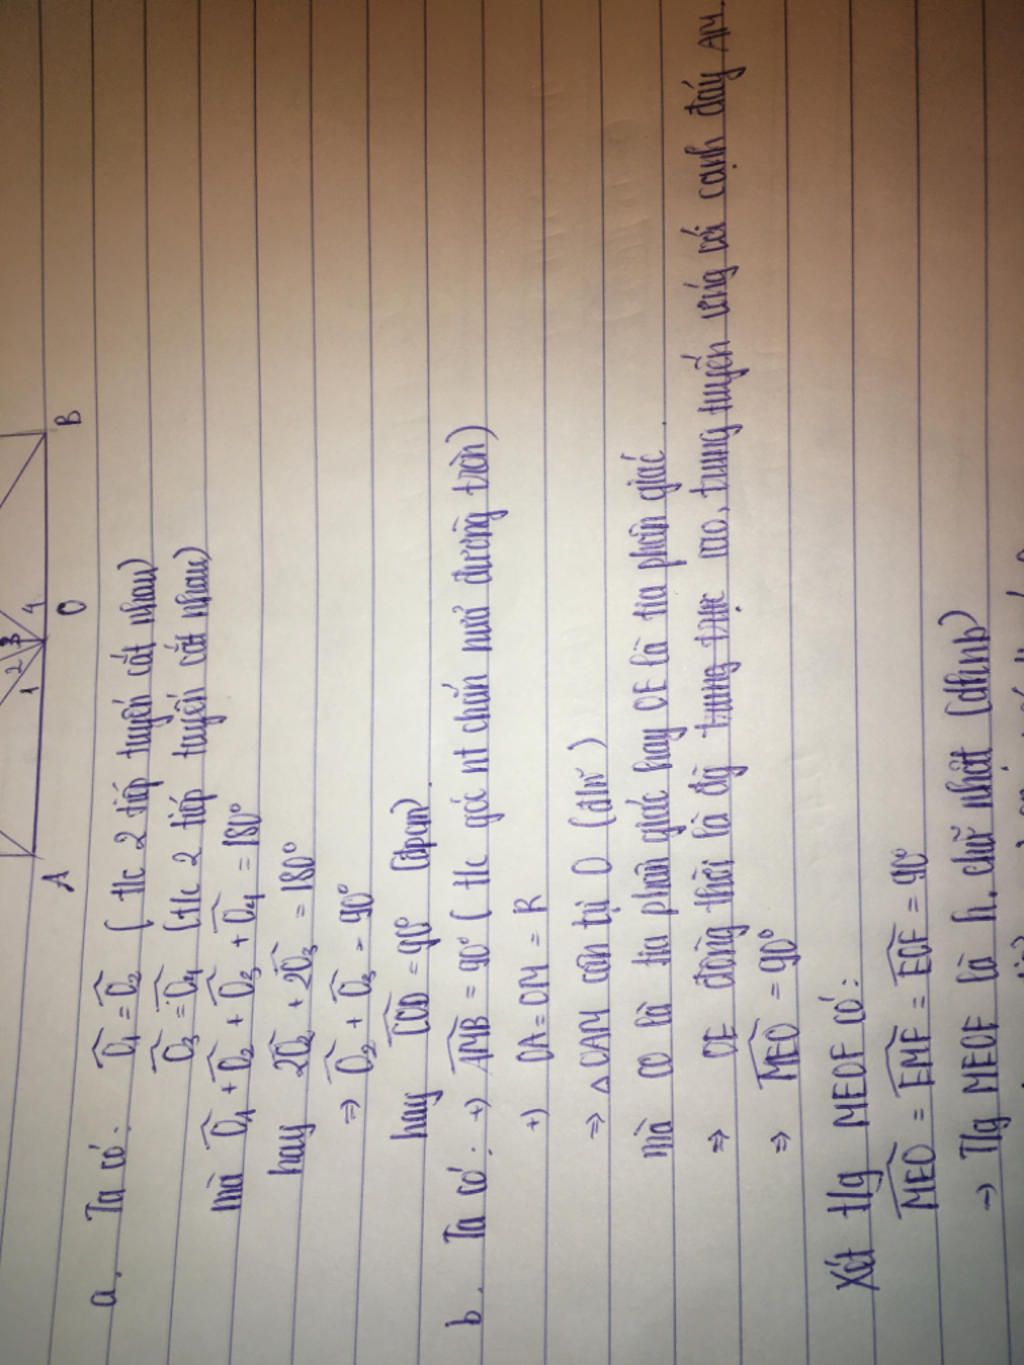 1 2 3 4
A O B
a. Ta có: Ô₁ = Ô₂ (t/c 2 tiếp tuyến cắt nhau)
Ô₃ = Ô₄ (t/c 2 tiếp tuyến cắt nhau)
mà Ô₁ + Ô₂ + Ô₃ + Ô₄ = 180°
hay 2Ô₂ + 2Ô₃ = 180°
⇒ Ô₂ + Ô₃ = 90°
hay COD = 90° (đpcm).
b. Ta có: +) AMB = 90° (t/c góc nt chắn nửa đường tròn)
+) OA = OM = R
⇒ △OAM cân tại O (đ/n)
mà CO là tia phân giác hay OE là tia phân giác.
⇒ OE đồng thời là đg trung trực cao, trung tuyến ứng với cạnh đáy AM.
⇒ MEO = 90°
Xét t/g MEOF có:
MEO = EMF = EOF = 90°
→ T/g MEOF là h. chữ nhật (dhnb)